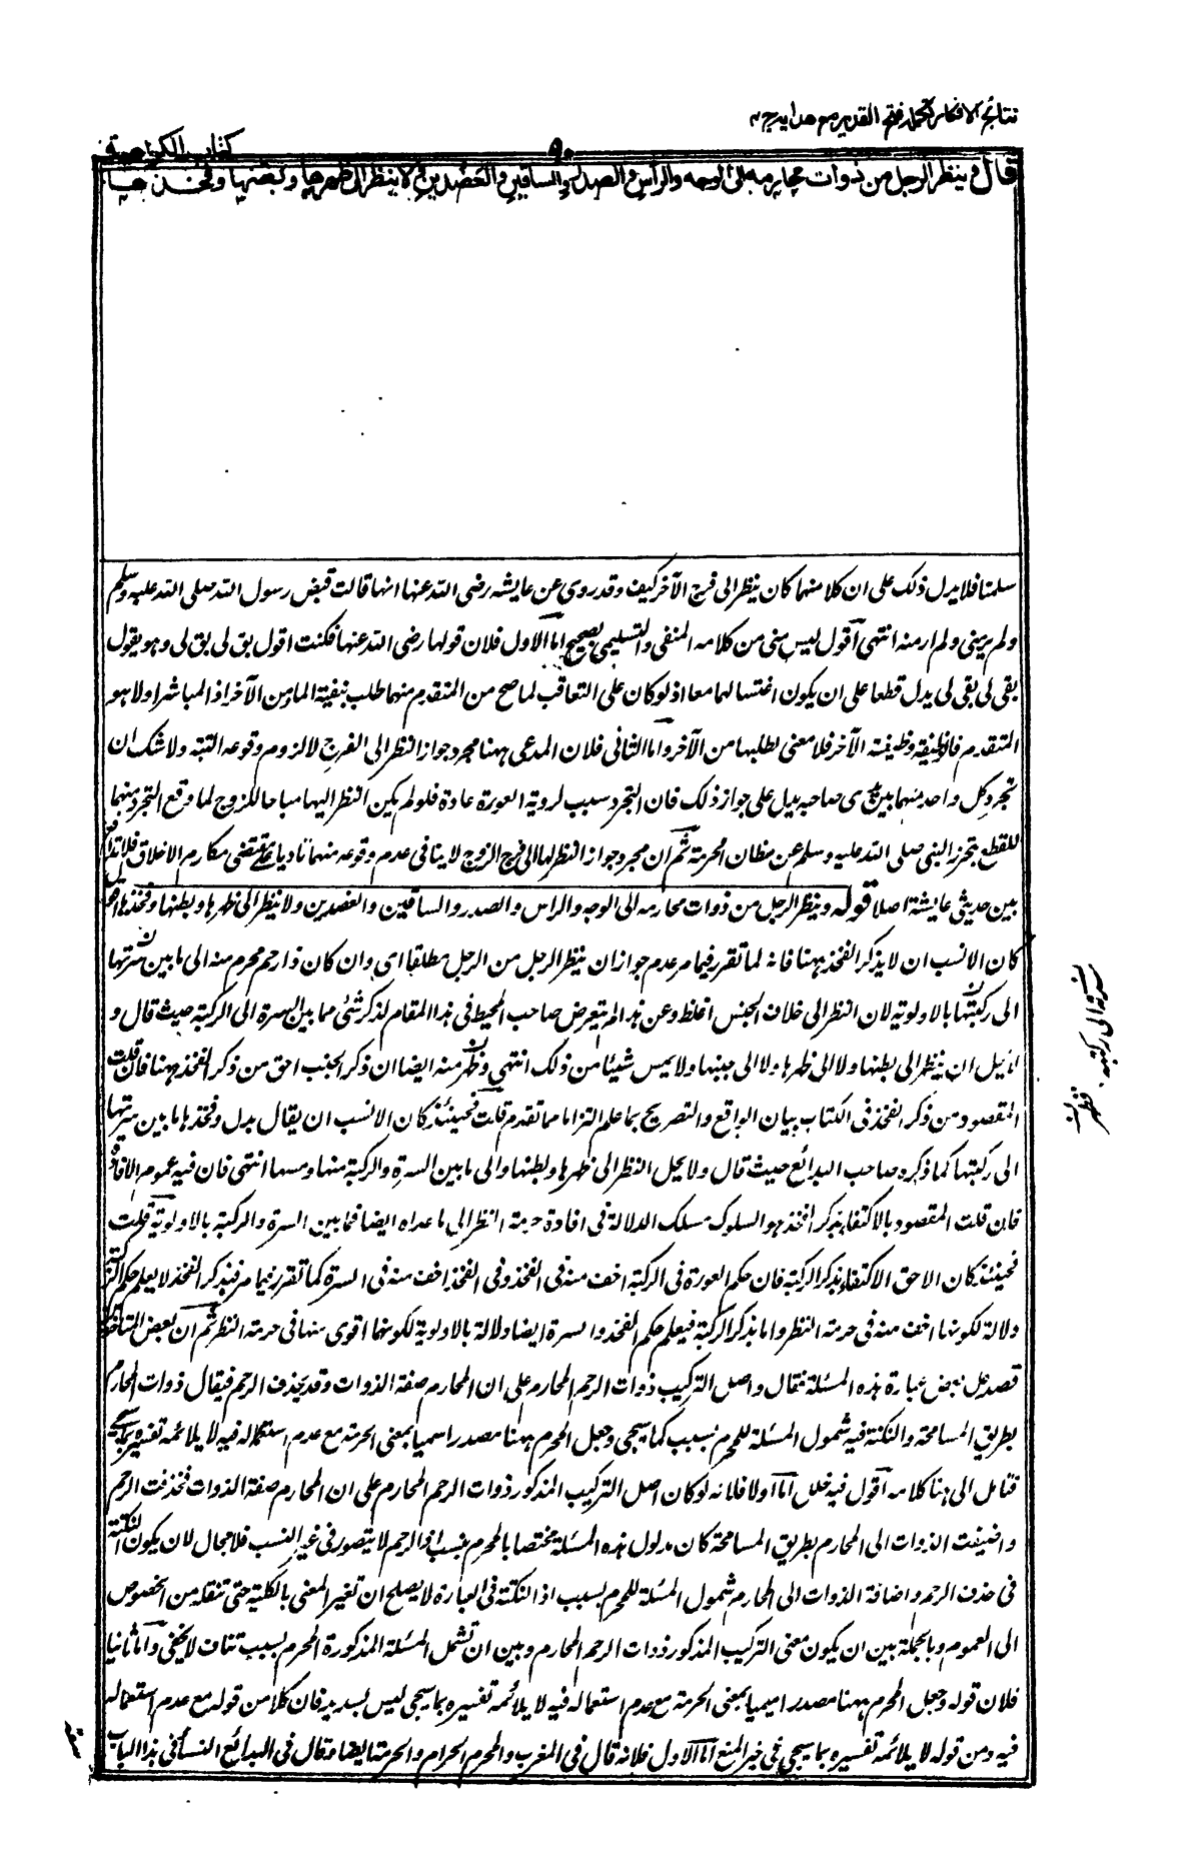 نتائج الافكار تكملہ فتح القدیر مع ھدایہ ج ۴
٩٠
كتاب الكراهية
قال وينظر الرجل من ذوات محارمه الى الوجه والرأس والصدر والساقين والعضدين ولا ينظر الى ظهرها وبطنها وفخذها
سلمنا فلا يدل ذلك على ان كلا منهما كان ينظر الى فرج الآخر كيف وقد روى عن عايشه رضى الله عنها انها قالت قبض رسول الله صلى الله عليه وسلم
ولم يرينى ولم ار منه انتهى اقول ليس شئ من كلامه المنفى والتسليمى بصحيح اما الاول فلان قولها رضى الله عنها فكنت اقول بق لى بق لى وهو يقول
بقى لى بقى لى يدل قطعا على ان يكون اغتسالهما معا اذ لو كان على التعاقب لما صح من المتقدم منهما طلب بقية الماء من الآخر اذ المباشر اولا هو
المتقدم فالوظيفة وظيفته الآخر فلا معنى لطلبها من الآخر واما الثانى فلان المدعى ههنا مجرد جواز النظر الى الفرج لا لزوم وقوعه البتة ولا شك ان
تجرد كل واحد منهما بين يدى صاحبه يدل على جواز ذلك فان التجرد سبب لروية العورة عادة فلو لم يكن النظر اليها مباحا للزوج لما وقع التجرد منهما
للقطع بتحرز النبى صلى الله عليه وسلم عن مظان الحرمة ثم ان مجرد جواز النظر لهما الى فرج الزوج لا ينافى عدم وقوعه منهما تادبا على مقتضى مكارم الاخلاق فلا تدافع
بين حديثى عايشة اصلا قوله وينظر الرجل من ذوات محارمه الى الوجه والراس والصدر والساقين والعضدين ولا ينظر الى ظهرها وبطنها وفخذها
كان الانسب ان لا يذكر الفخذ ههنا فانه لما تقرر فيما مر عدم جواز ان ينظر الرجل من الرجل مطلقا اى وان كان ذا رحم محرم منه الى ما بين سرتها
الى ركبتها بالاولوية لان النظر الى خلاف الجنس اغلظ وعن هذا لم يتعرض صاحب المحيط فى هذا المقام لذكر شئ مما بين السرة الى الركبة حيث قال و
لا يحل ان ينظر الى بطنها ولا الى ظهرها ولا الى جنبها ولا يمس شيئا من ذلك انتهى وظهر منه ايضا ان ذكر الجنب احق من ذكر الفخذ ههنا فان قلت
المقصود من ذكر الفخذ فى الكتاب بيان الواقع والتصريح بما علم التزاما مما تقدم قلت فحينئذ كان الانسب ان يقال بدل وفخذها ما بين سرتها
الى ركبتها كما ذكره صاحب البدائع حيث قال ولا يحل النظر الى ظهرها وبطنها والى ما بين السرة والركبة منها ومسها انتهى فان فيه عموم الافادة
فان قلت المقصود بالاكتفاء بذكر الفخذ هو السلوك مسلك الدلالة فى افادة حرمة النظر الى ما عداه ايضا فما بين السرة والركبة بالاولوية قلت
فحينئذ كان الاحق الاكتفاء بذكر الركبة فان حكم العورة فى الركبة اخف منه فى الفخذ وفى الفخذ اخف منه فى السرة كما تقرر فيما مر فبذكر الفخذ لا يعلم حكم الركبة
دلالة لكونها اخف منه فى حرمة النظر واما بذكر الركبة فيعلم حكم الفخذ والسرة ايضا دلالة بالاولوية لكونهما اقوى منها فى حرمة النظر ثم ان بعض المتاخرين
قصد حل بعض عبارة هذه المسئلة فقال واصل التركيب ذوات الرحم المحارم على ان المحارم صفة الذوات وقد يحذف الرحم فيقال ذوات المحارم
بطريق المسامحة والنكتة فيه شمول المسئلة للمحرم بسبب كما سيجى وجعل المحرم ههنا مصدرا سميا بمعنى الحرمة مع عدم استعماله فيه لا يلائمه تفسيره بما سيجى
فتامل الى هنا كلامه اقول فيه خلل اما اولا فلانه لو كان اصل التركيب المذكور ذوات الرحم المحارم على ان المحارم صفة الذوات فحذفت الرحم
واضيفت الذوات الى المحارم بطريق المسامحة كان مدلول هذه المسئلة مختصا بالمحرم بنسب اذ الرحم لا يتصور فى غير النسب فلا مجال لان يكون النكتة
فى حذف الرحم واضافة الذوات الى المحارم شمول المسئلة للمحرم بسبب اذ النكتة فى العبارة لا يصلح ان تغير المعنى بالكلية حتى تنقله من الخصوص
الى العموم وبالجملة بين ان يكون معنى التركيب المذكور ذوات الرحم المحارم وبين ان تشمل المسئلة المذكورة المحرم بسبب تناف لا يخفى واما ثانيا
فلان قوله وجعل المحرم ههنا مصدرا سميا بمعنى الحرمة مع عدم استعماله فيه لا يلائمه تفسيره بما سيجى ليس بسديد فان كلا من قوله مع عدم استعماله
فيه ومن قوله لا يلائمه تفسيره بما سيجى فى خير المنع اما الاول فلانه قال فى المغرب والمحرم الحرام والحرمة ايضا وقال فى البدائع النسأ فى هذا الباب
سرته الى ركبته